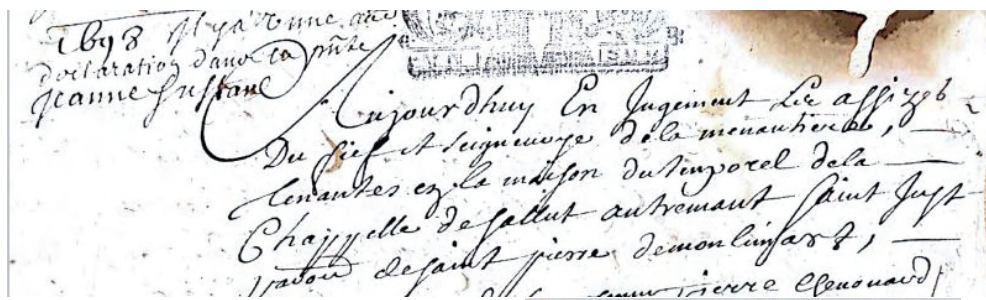 1698 Il y a une autre
declaration dans la pnte
Jeanne
Aujourdhuy En Jugement Les assizes
Du fief et seigneurye de la menantiere,
tenantes en la maison du temporel dela
Chappelle de sallut autremant saint Just
de saint pierre demonlimart,
pierre